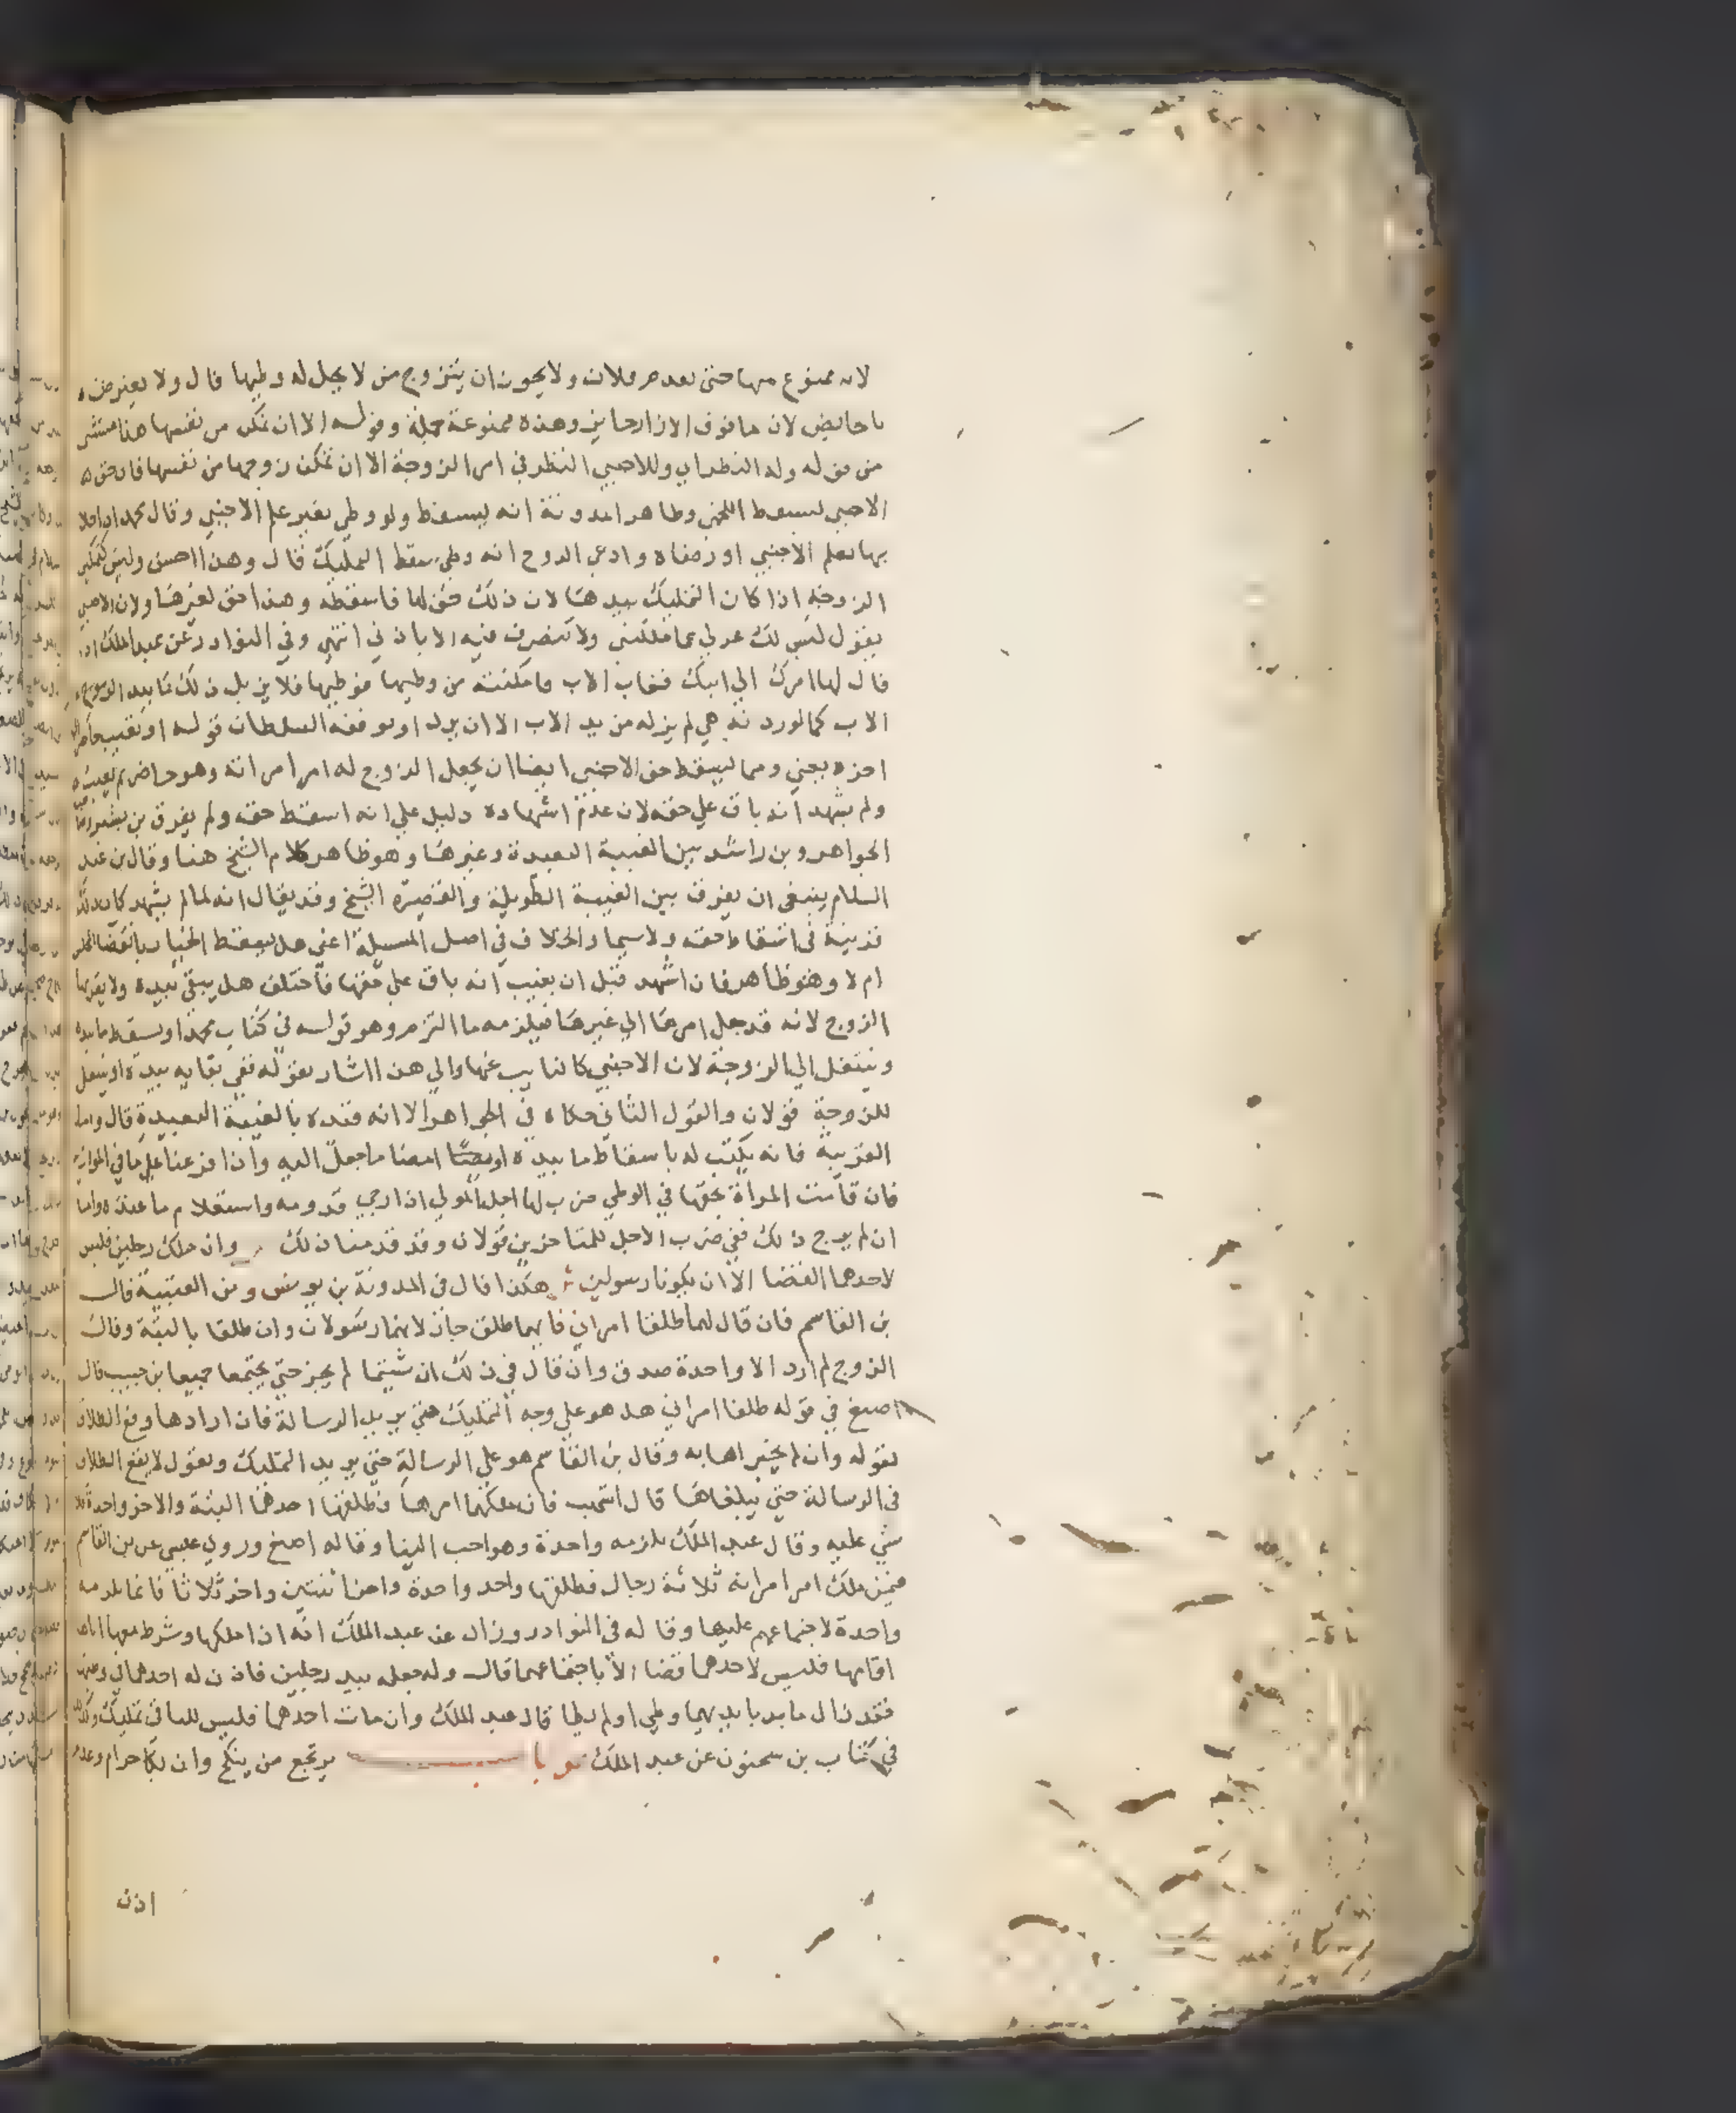 لانه ممنوع منها حتى يقدم فلان ولا يجوز ان يتزوج من لا يحل له وطيها قال ولا يعترض
بالحايض لان ما فوق الازار جايز وهذه ممنوعة جملة وقوله الا ان تمكن من نفسها هذا مستثنى
من قوله وله النظر اي وللاجنبي النظر في امر الزوجة الا ان تمكن زوجها من نفسها فان حق
الاجنبي يسقط اللخمي وظاهر المدونة انه يسقط ولو وطي بغير علم الاجنبي وقال محمد اذا خلا
بها بعلم الاجنبي او رضاه وادعى الزوج انه وطي سقط التمليك قال وهذا احسن وليس كتمكين
الزوجة اذا كان التمليك بيدها لان ذلك حق لها فاسقطته وهذا حق لغيرها ولان الاجنبي
يقول ليس لك عزلي عما ملكتني ولا تتصرف فيه الا باذني انتهى وفي النوادر عن عبد الملك اذا
قال لها امرك الى ابيك فغاب الاب وامكنته من وطيها فوطيها فلا يزيل ذلك ما بيد
الاب كما لو ردته هي لم يزله من يد الاب الا ان يرد او يوقفه السلطان قوله او يغيب حاضر
اخره يعني ومما يسقط حق الاجنبي ايضا ان يجعل الزوج له امر امراته وهو حاضر ثم يغيب
ولم يشهد انه باق على حقه لان عدم اشهاده دليل على انه اسقط حقه ولم يفرق بن بشير
الجواهر وبن راشد بين الغيبة البعيدة وغيرها وهو ظاهر كلام الشيخ هنا وقال بن عبد
السلام ينبغي ان يفرق بين الغيبة الطويلة والقصيرة الشيخ وقد يقال انه لما لم يشهد كان ذلك
قرينة في اسقاط حقه ولاسيما والخلاف في اصل المسيلة اعني هل يسقط الخيار بانقضا المجلس
ام لا وهو ظاهر فان اشهد قبل ان يغيب انه باق على حقها فاختلف هل يبقى بيده ولا يقربها
الزوج لانه قد جعل امرها الى غيرها فيلزمه ما التزم وهو قوله في كتاب محمد او يسقط ما بيده
وينتقل الى الزوجة لان الاجنبي كالنايب عنها والى هذا اشار بقوله ففي بقايه بيده او ينتقل
للزوجة قولان والقول الثاني حكاه في الجواهر الا انه قيده بالغيبة البعيدة قال واما
القريبة فانه يكتب له باسقاط ما بيده او يمضا ما جعل اليه واذا فرعنا على ما في الموازية
فان قامت المراة بحقها في الوطي ضرب لها اجل المولي اذا رجي قدومه واستعلام ما عنده واما
ان لم يرج ذلك ففي ضرب الاجل للمتاخرين قولان وقد قدمنا ذلك وان ملك رجلين فليس
لاحدهما القضا الا ان يكونا رسولين ش هكذا قال في المدونة بن يونس ومن العتبية قال
بن القاسم فان قال لهما طلقا امراتي فايهما طلق جاز لانهما رسولان وان طلقا بالبتة وقال
الزوج لم ارد الا واحدة صدق وان قال في ذلك ان شيتما لم يجز حتى يجتمعا جميعا بن حبيب قال
اصبغ في قوله طلقا امراتي هل هو على وجه التمليك حتى يريد الرسالة فان ارادها وقع الطلاق
بقوله وان لم يخبراها به وقال بن القاسم هو على الرسالة حتى يريد التمليك ويقول لا يقع الطلاق
في الرسالة حتى يبلغاها قال اشهب فان ملكهما امرها فطلقها احدهما البتة والاخر واحدة فلا
شي عليه وقال عبد الملك يلزمه واحدة وهو احب الينا وقاله اصبغ وروى عيسى عن بن القاسم
فيمن ملك امر امراته ثلاثة رجال فطلقها واحد واحدة واخر اثنتين واخر ثلاثا فانما يلزمه
واحدة لاجتماعهم عليها وقاله في النوادر وزاد عن عبد الملك انه اذا ملكها وشرط معها اباها
اقامها فليس لاحدهما قضا الا باجتماعهما قال ولو جعله بيد رجلين فاذن له احدهما في وطيها
فقد زال ما بدا بايديهما وطي او لم يطا قال عبد الملك وان مات احدهما فليس للباقي تمليك وكذلك
في كتاب بن سحنون عن عبد الملك ص باب يرتجع من ينكح وان بكاحرام وعدم
اذن